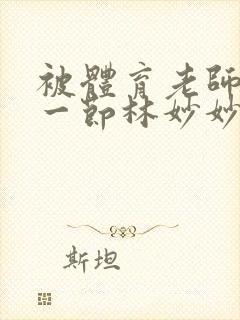 被體育老師
一節林妙妙
斯坦